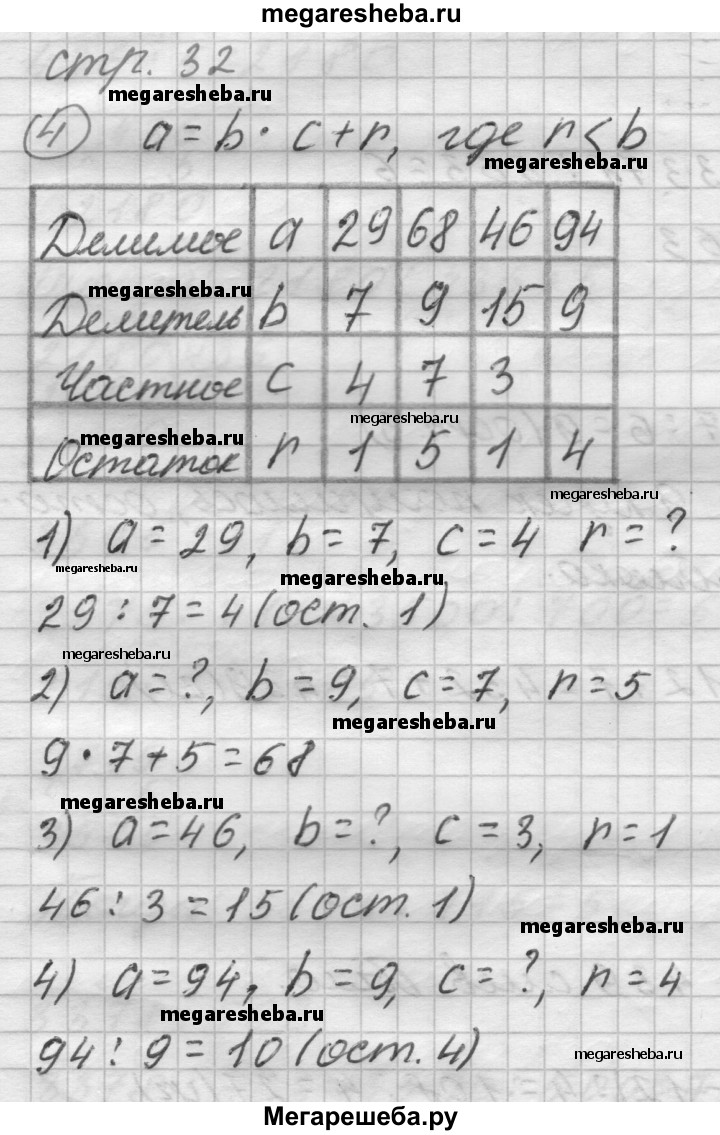 megaresheba.ru
стр. 32
megaresheba.ru
4 a = b · c + r, где r < b
megaresheba.ru
Делимое a 29 68 46 94
megaresheba.ru
Делитель b 7 9 15 9
Частное c 4 7 3
megaresheba.ru
megaresheba.ru
Остаток r 1 5 1 4
megaresheba.ru
1) a = 29, b = 7, c = 4 r = ?
megaresheba.ru
megaresheba.ru
29 : 7 = 4 (ост. 1)
megaresheba.ru
2) a = ?, b = 9, c = 7, r = 5
megaresheba.ru
9 · 7 + 5 = 68
megaresheba.ru
3) a = 46, b = ?, c = 3, r = 1
46 : 3 = 15 (ост. 1)
megaresheba.ru
4) a = 94, b = 9, c = ?, r = 4
megaresheba.ru
94 : 9 = 10 (ост. 4)
megaresheba.ru
Мегарешеба.ру